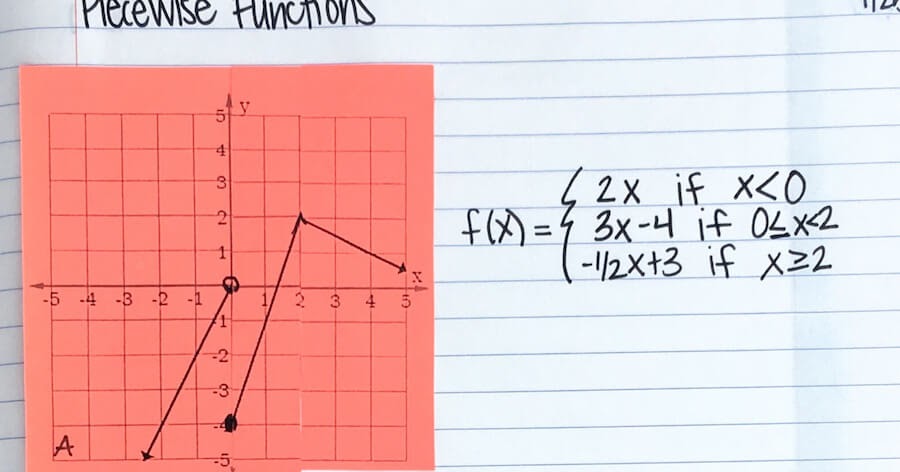 Piecewise Functions
y
5
4
3
2
1
x
-5 -4 -3 -2 -1 1 2 3 4 5
-1
-2
-3
-4
-5
A
f(x) = { 2x if x<0
3x-4 if 0≤x<2
-1/2x+3 if x≥2